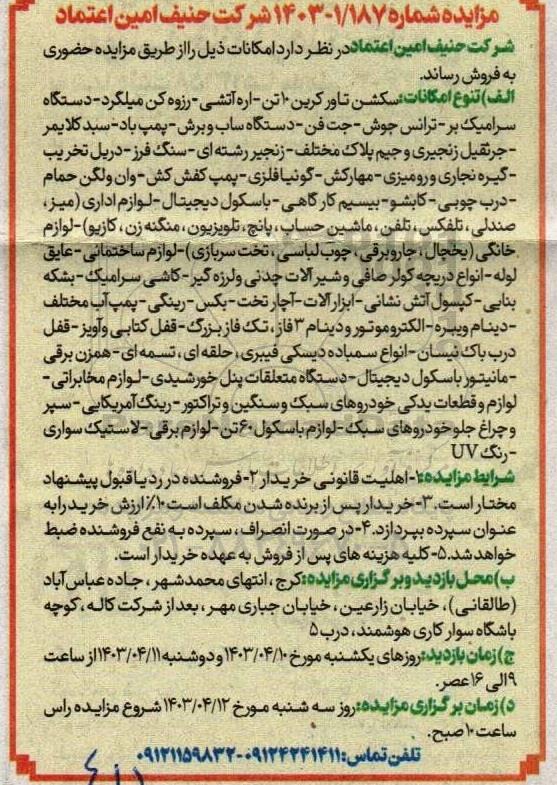 مزایده شماره ۱/۱۸۷-۱۴۰۳ شرکت حنیف امین اعتماد
شرکت حنیف امین اعتماد در نظر دارد امکانات ذیل را از طریق مزایده حضوری
به فروش رساند.
الف) تنوع امکانات: سکشن تاور کرین ۱۰ تن - اره آتشی - رزوه کن میلگرد - دستگاه
سرامیک بر - ترانس جوش - جت فن - دستگاه ساب و برش - پمپ باد - سبد کلایمر
- جرثقیل زنجیری و جیم پلاک مختلف - زنجیر رشته ای - سنگ فرز - دریل تخریب
- گیره نجاری و رومیزی - مهارکش - گونیا فلزی - پمپ کفش کش - وان ولگن حمام
- درب چوبی - کابشو - بیسیم کارگاهی - باسکول دیجیتال - لوازم اداری (میز،
صندلی، تلفکس، تلفن، ماشین حساب، پانچ، تلویزیون، منگنه زن، کازیو) - لوازم
خانگی (یخچال، جاروبرقی، چوب لباسی، تخت سربازی) - لوازم ساختمانی - عایق
لوله - انواع دریچه کولر صافی و شیرآلات چدنی ولرزه گیر - کاشی سرامیک - بشکه
بنایی - کپسول آتش نشانی - ابزارآلات - آچار تخت - بکس - رینگی - پمپ آب مختلف
- دینام ویبره - الکتروموتور و دینام ۳ فاز، تک فاز بزرگ - قفل کتابی و آویز - قفل
درب باک نیسان - انواع سمباده دیسکی فیبری، حلقه ای، تسمه ای - همزن برقی
- مانیتور باسکول دیجیتال - دستگاه متعلقات پنل خورشیدی - لوازم مخابراتی -
لوازم و قطعات یدکی خودروهای سبک و سنگین و تراکتور - رینگ آمریکایی - سپر
و چراغ جلو خودروهای سبک - لوازم باسکول ۶۰ تن - لوازم برقی - لاستیک سواری
- رنگ UV
شرایط مزایده: ۱- اهلیت قانونی خریدار ۲- فروشنده در رد یا قبول پیشنهاد
مختار است. ۳- خریدار پس از برنده شدن مکلف است ۱۰٪ ارزش خرید را به
عنوان سپرده بپردازد. ۴- در صورت انصراف، سپرده به نفع فروشنده ضبط
خواهد شد. ۵- کلیه هزینه های پس از فروش به عهده خریدار است.
ب) محل بازدید و برگزاری مزایده: کرج، انتهای محمدشهر، جاده عباس آباد
(طالقانی)، خیابان زارعین، خیابان جباری مهر، بعد از شرکت کاله، کوچه
باشگاه سوارکاری هوشمند، درب ۵
ج) زمان بازدید: روزهای یکشنبه مورخ ۱۴۰۳/۰۴/۱۰ و دوشنبه ۱۴۰۳/۰۴/۱۱ از ساعت
۹ الی ۱۶ عصر.
د) زمان برگزاری مزایده: روز سه شنبه مورخ ۱۴۰۳/۰۴/۱۲ شروع مزایده راس
ساعت ۱۰ صبح.
تلفن تماس: ۰۹۱۲۴۲۴۱۴۱۱ - ۰۹۱۲۱۱۵۹۸۳۲